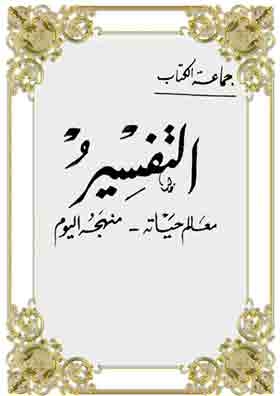 جماعة الكتاب
التفسير
معالم حياته - منهجه اليوم